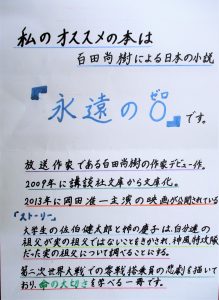 私のオススメの本は
百田尚樹による日本の小説
『永遠の0』です。
ゼロ
放送作家である百田尚樹の作家デビュー作。
2009年に講談社文庫から文庫化。
2013年に岡田准一主演の映画が公開されている
「ストーリー」
大学生の佐伯健太郎と姉の慶子は、自分達の
祖父が実の祖父ではないことをきかされ、神風特攻隊
だった実の祖父について調べることにする。
第二次世界大戦での零戦搭乗員の悲劇を描いて
おり、命の大切さを学べる一冊です。